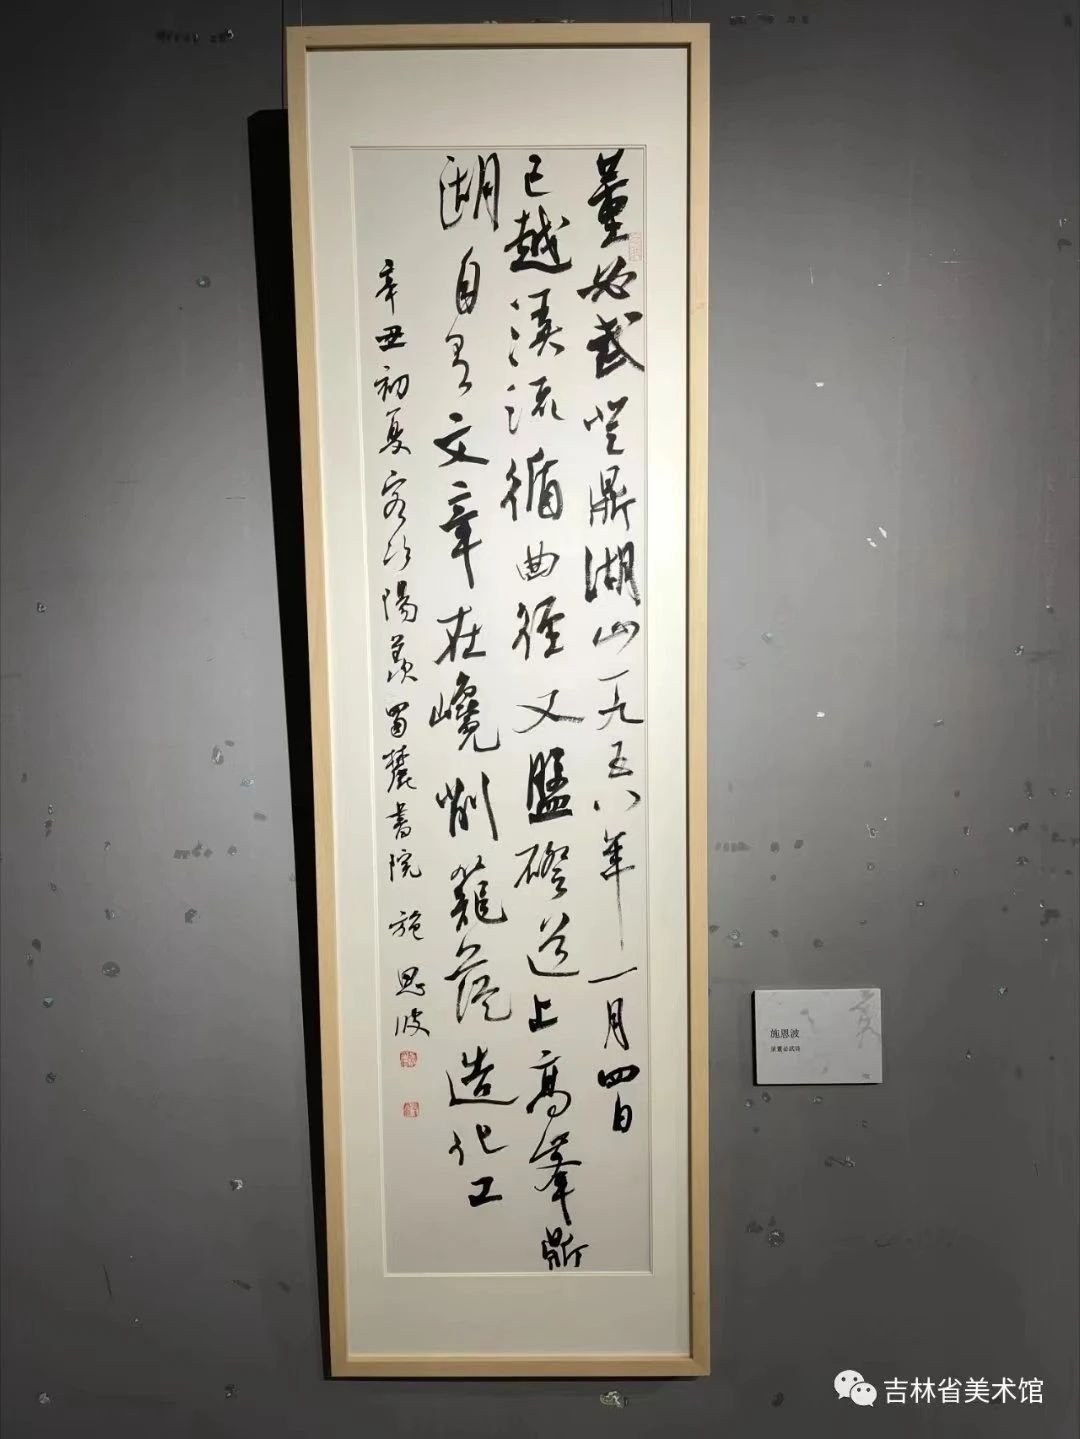 董必武登鼎湖山一九五八年一月四日
已越溪流循曲徑又盤磴道上高峯鼎
湖自有文章在巉削蘢蓯造化工
辛丑初夏客次陽羨蜀麓書院 施恩波
施恩波
录董必武诗
吉林省美术馆